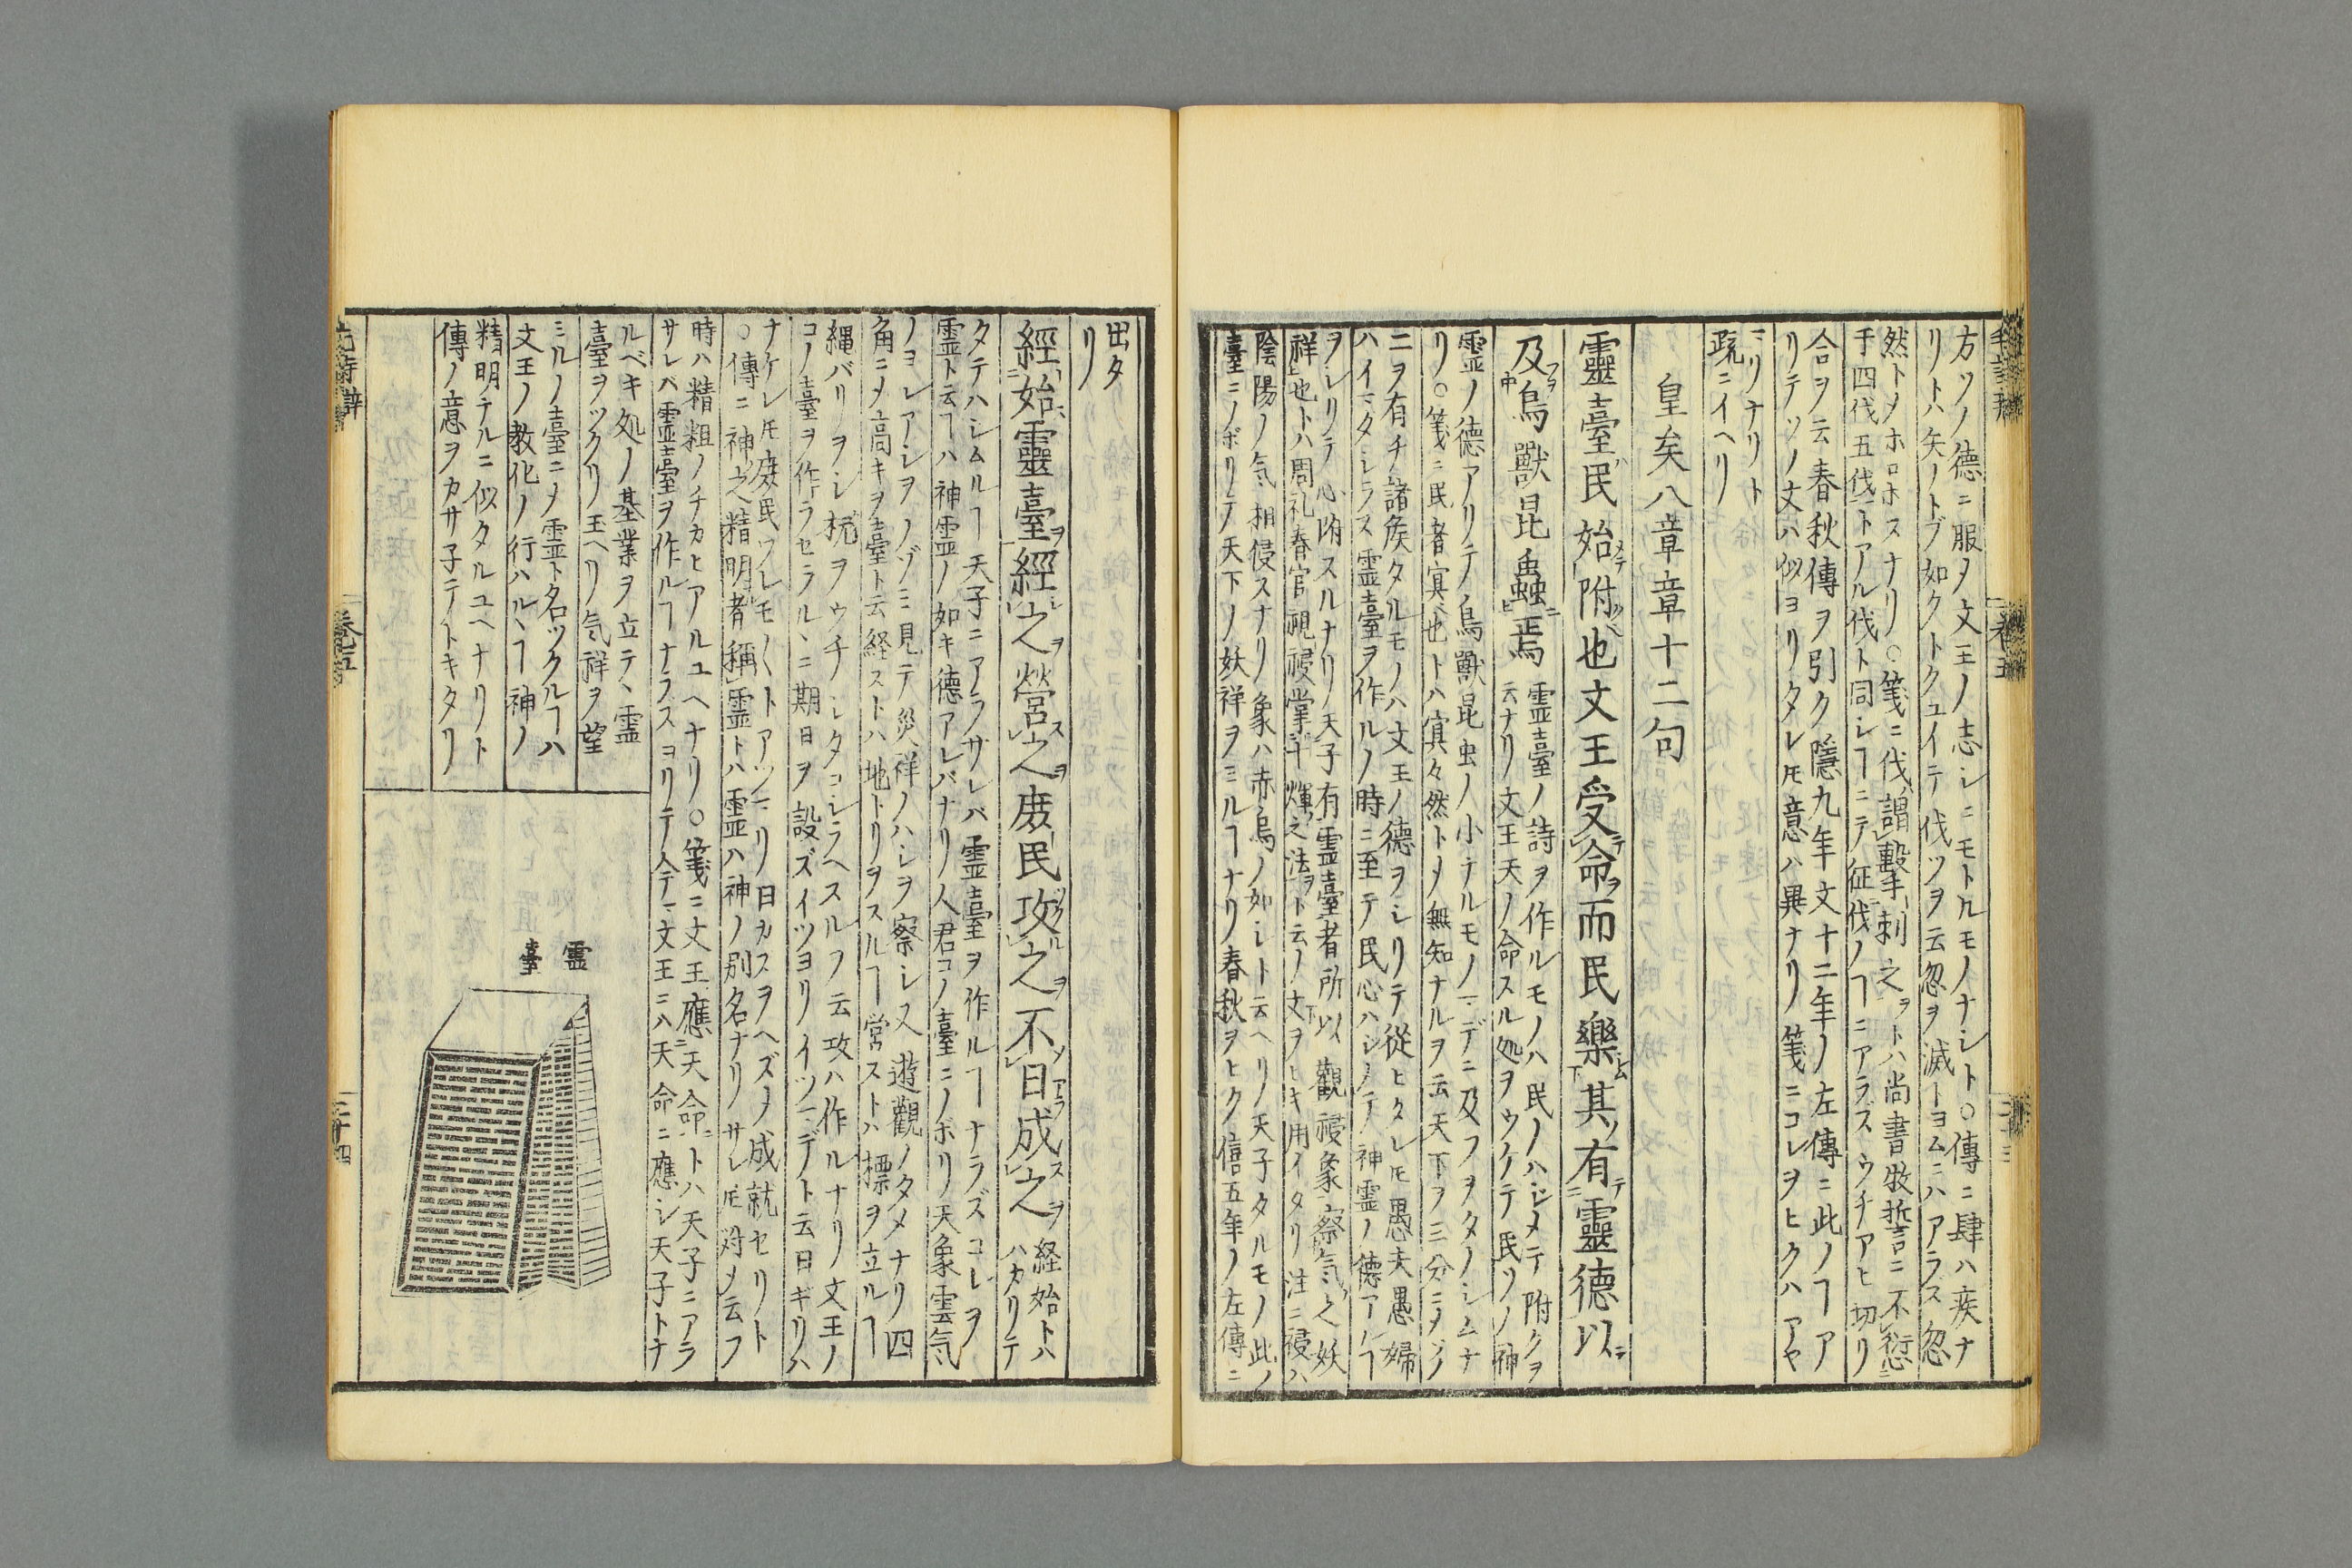 方ツノ德ニ服ノ文王ノ志シニモトルモノナシト○傳ニ肆ハ疾ナ
リトハ矢ノトブ如クトクユイテ伐ツヲ云忽ヲ滅トヨムニハアラス忽
然トメホロホスナリ○箋ニ伐謂擊刺之ヲトハ尚書牧誓ニ不愆
于四伐五伐トアル伐ト同シヿニテ征伐ノヿニアラズウチアヒ切リ
合ヲ云春秋傳ヲ引ク隱九年文十二年ノ左傳ニ此ノヿア
リテソノ文ハ似ヨリタレ𪜈意ハ異ナリ箋ニコレヲヒクハアヤ
マリナリト
疏ニイヘリ
皇矣八章章十二句
靈臺民始附也文王受命而民樂其有靈德以
及鳥獸昆蟲焉
霊臺ノ詩ヲ作ルモノハ民ノハジメテ附クヲ
云ナリ文王天ノ命スル処ヲウケテ民ソノ神
霊ノ德アリテ鳥獸昆虫ノ小ナルモノマデニ及フヲタノシムナ
リ○箋ニ民者冥也トハ冥々然トメ無知ナルヲ云天下ヲ三分ニメソノ
二ヲ有チ諸矦タルモノハ文王ノ德ヲシリテ從ヒタレ𪜈愚夫愚婦
ハイマタシラス霊臺ヲ作ルノ時ニ至テ民心ハシメテ神霊ノ德アルヿ
ヲシリテ心附スルナリ天子有霊臺者所以觀祲象察気之妖
祥也トハ周礼春官視祲掌十煇之法ヲト云ノ文ヲヒキ用イタリ注ニ祲ハ
陰陽ノ気相侵スナリ象ハ赤烏ノ如シト云ヘリ天子タルモノ此ノ
臺ニノボリテ天下ノ妖祥ヲミルヿナリ春秋ヲヒク僖五年ノ左傳ニ
出タ
リ
經始靈臺經之營之庻民攻之不日成之
経始トハ
ハカリテ
タテハシムルヿ天子ニアラサレバ霊臺ヲ作ルヿナラズコレヲ
霊ト云ヿハ神霊ノ如キ德アレバナリ人君コノ臺ニノボリ天象雲気
ノヨシアシヲノゾミ見テ災祥ノハシヲ察シ又遊觀ノタメナリ四
角ニメ高キヲ臺ト云経ストハ地トリヲスルヿ営ストハ標ヲ立ルヿ
縄バリヲシ杭ヲウチシタコシラヘスルヲ云攻ハ作ルナリ文王ノ
コノ臺ヲ作ラセラルヽニ期日ヲ設ズイツヨリイツマデト云日ギリハ
ナケレ𪜈庻民ワレモ〳〵トアツマリ日カスヲヘズメ成就セリト
○傳ニ神之精明者稱霊トハ霊ハ神ノ別名ナリサレ𪜈対メ云フ
時ハ精粗ノチカヒアルユヘナリ○箋ニ文王應天命トハ天子ニアラ
サレバ霊臺ヲ作ルヿナラスヨリテ今マ文王ニハ天命ニ應シ天子トナ
ルベキ処ノ基業ヲ立テヽ霊
臺ヲツクリ玉ヘリ気祥ヲ望
ミルノ臺ニメ霊ト名ツクルヿハ
文王ノ教化ノ行ハルヽヿ神ノ
精明ナルニ似タルユヘナリト
傳ノ意ヲカサ子テトキタリ
霊
臺
卷五
二十四